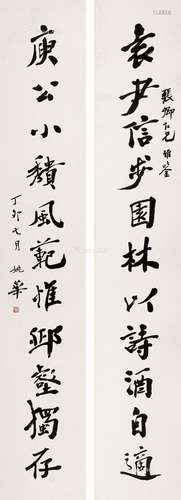 袁尹信步園林以詩酒自適
張卿仁兄雅鑒
庾公小穨風範惟邱壑獨存
丁卯七月 姚華